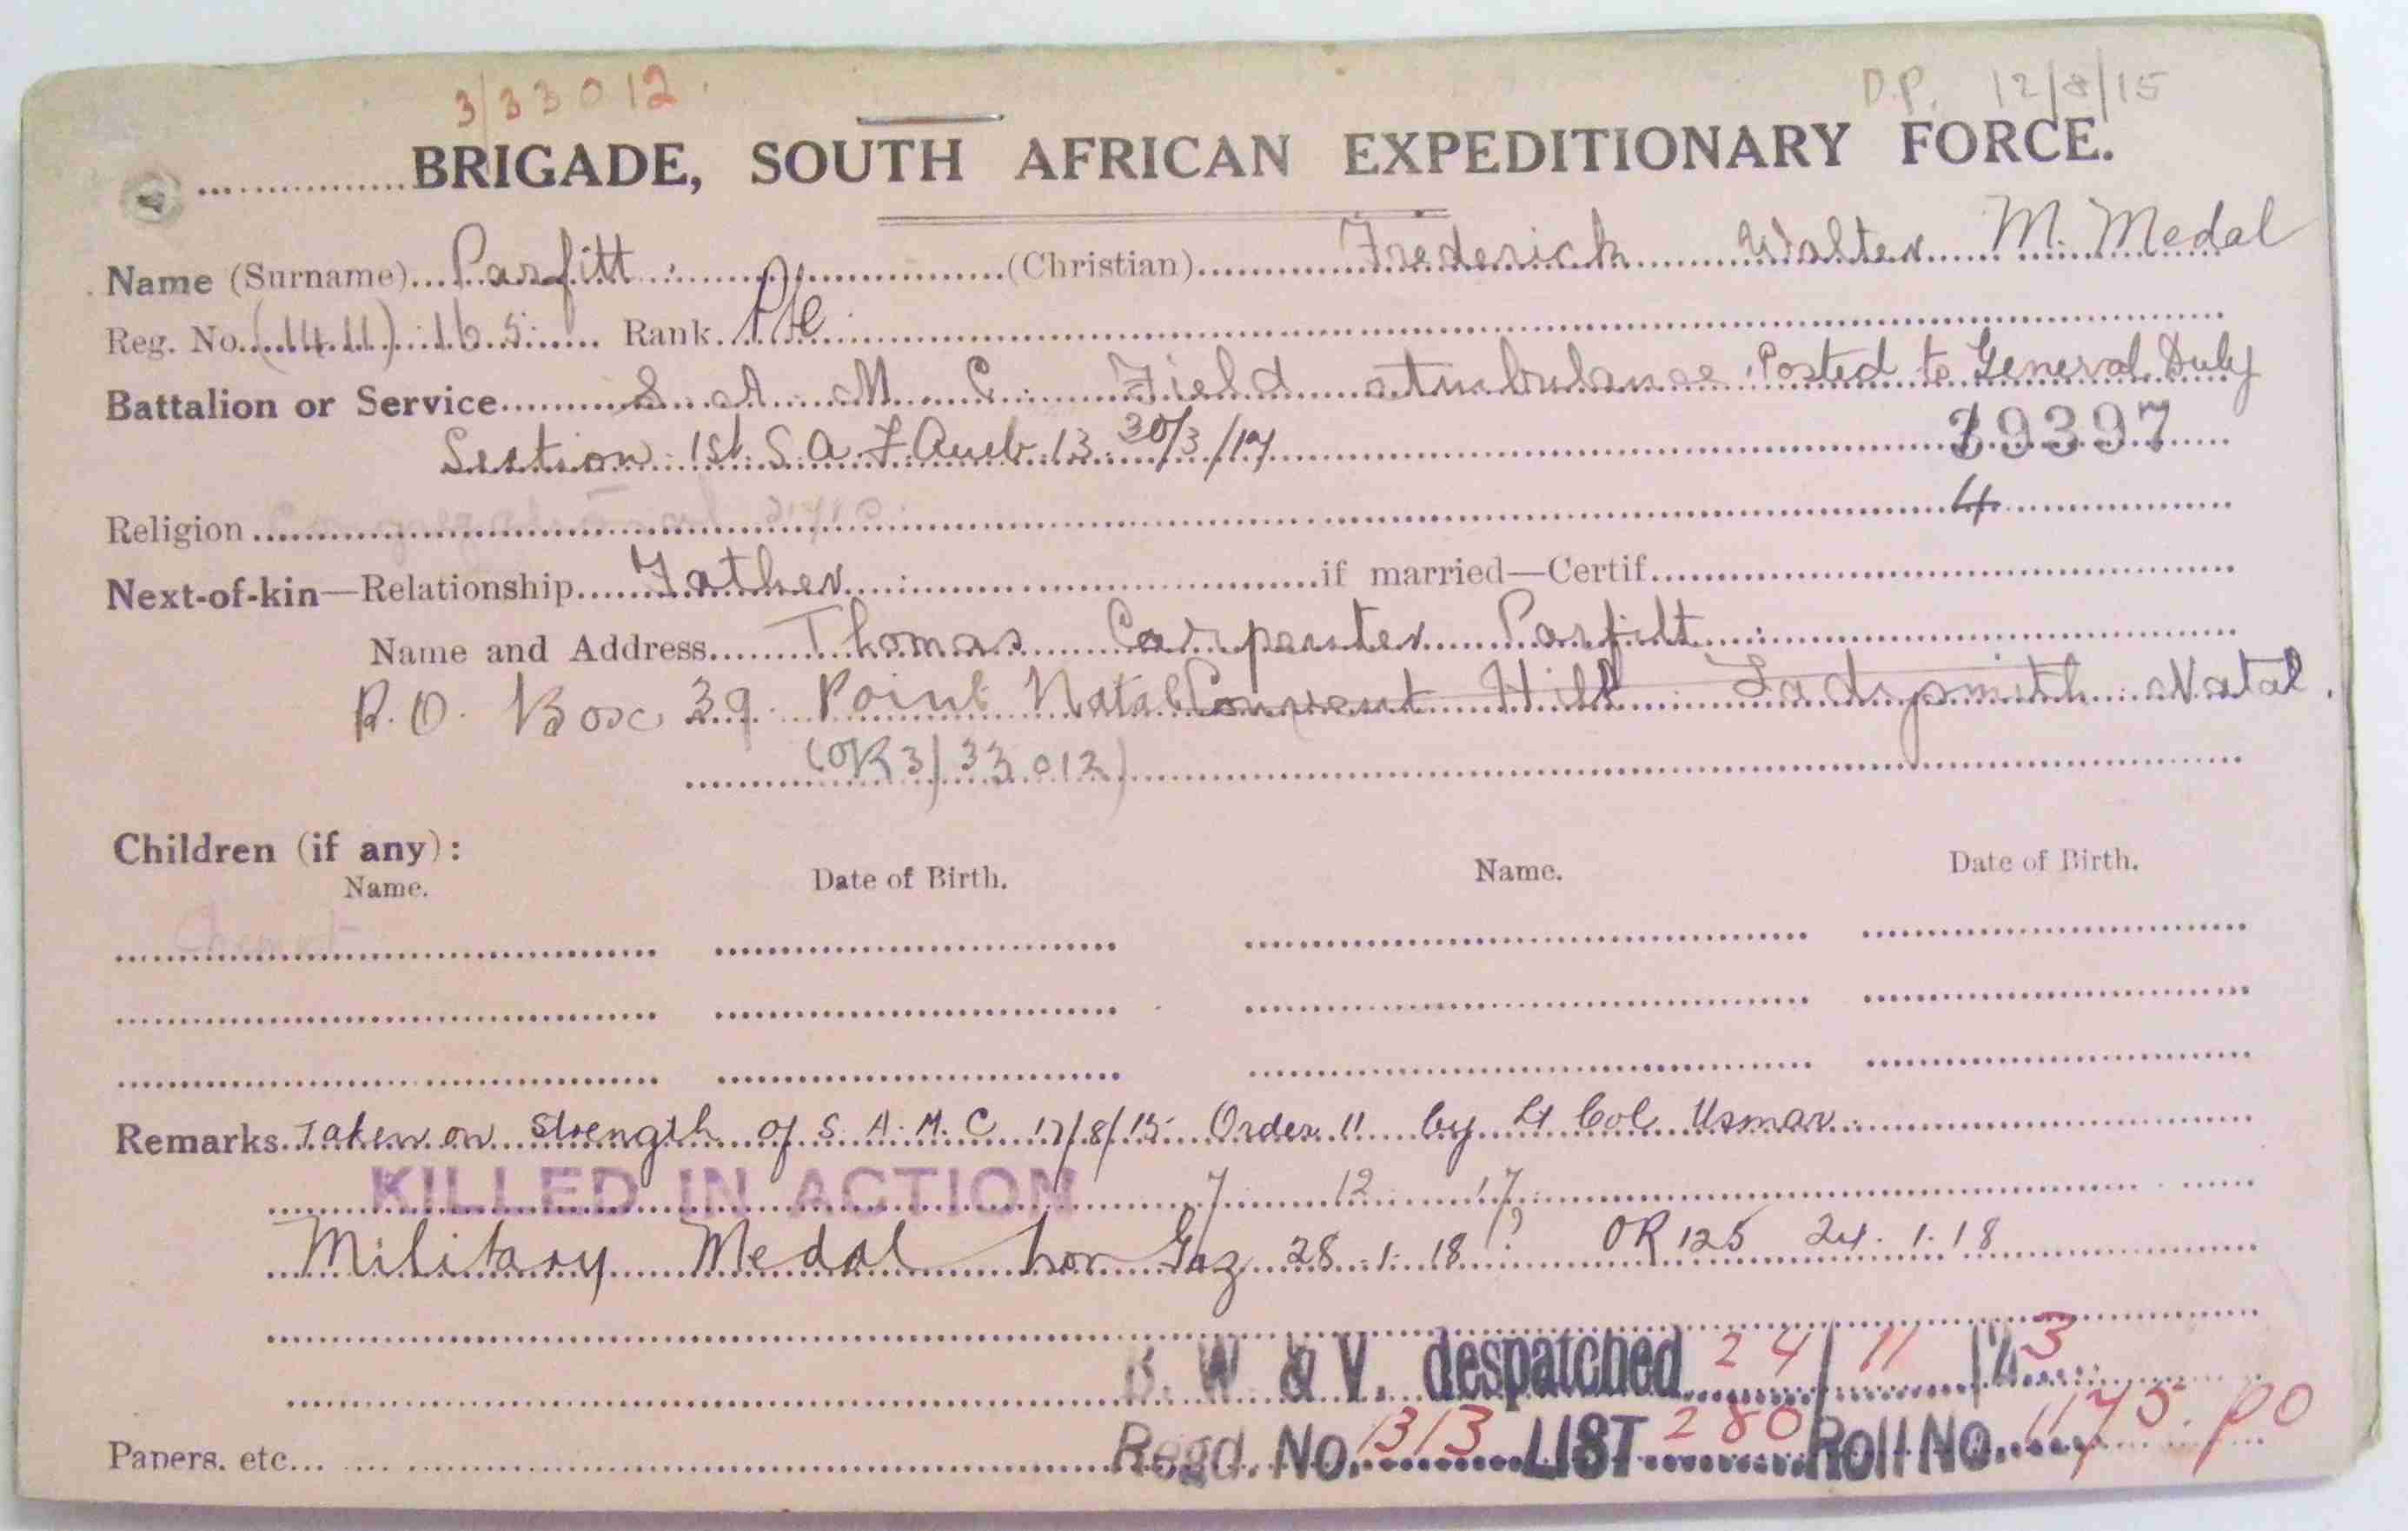 3/33012.
D.P. 12/8/15
BRIGADE, SOUTH AFRICAN EXPEDITIONARY FORCE.
Name (Surname) Parfitt (Christian) Frederick Walter M. Medal
Reg. No. (1411) 165 Rank Pte
Battalion or Service S. A. M. C. Field Ambulance Posted to General Duty
Section 1st S.A.F. Amb 13 30/3/17 39397
Religion 4
Next-of-kin—Relationship Father if married—Certif.
Name and Address Thomas Carpenter Parfitt
P.O. Box 39 Point Natal Convent Hill Ladysmith Natal.
(OR3/33012)
Children (if any):
Name. Date of Birth. Name. Date of Birth.
Remarks. Taken on strength of S. A. M. C 17/8/15 Order 11 by Lt Col Usmar
KILLED IN ACTION 7 12 17
Military Medal Lon Gaz 28.1.18? OR 125 24.1.18
B. W & V. despatched 24/11/23
Regd. No. 1313 LIST 280 Roll No. 1175. PO
Papers, etc.